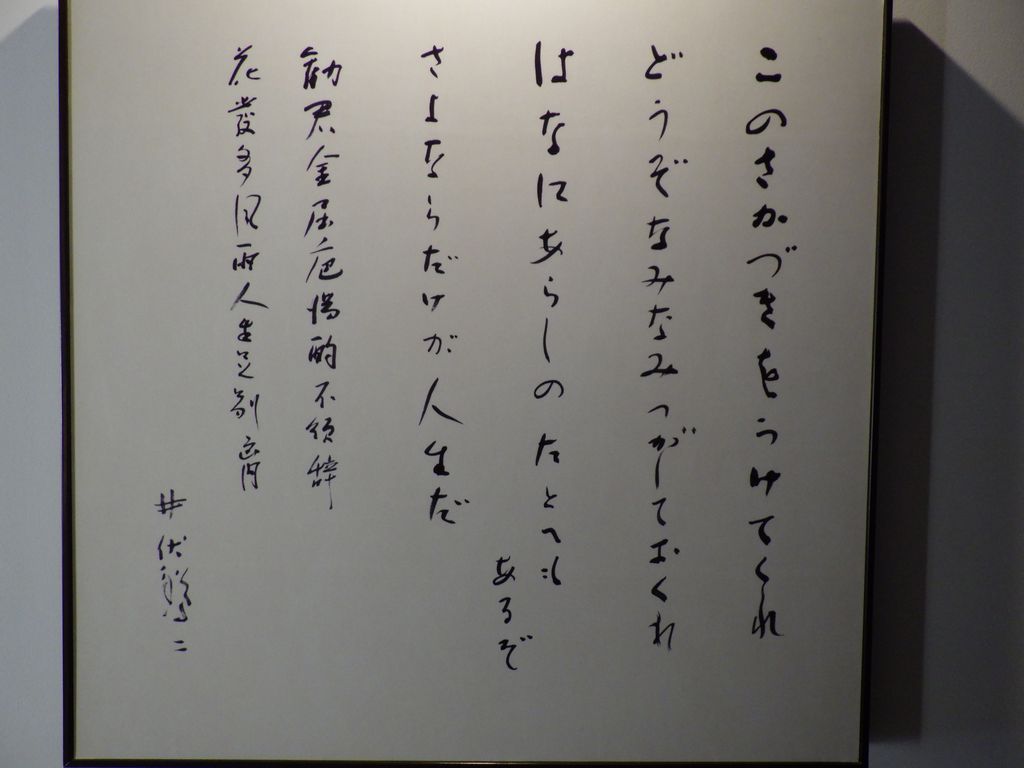 このさかづきをうけてくれ
どうぞなみなみつがしておくれ
はなにあらしのたとへも
あるぞ
さよならだけが人生だ
勧君金屈卮満酌不須辞
花発多風雨人生足別離
井伏鱒二